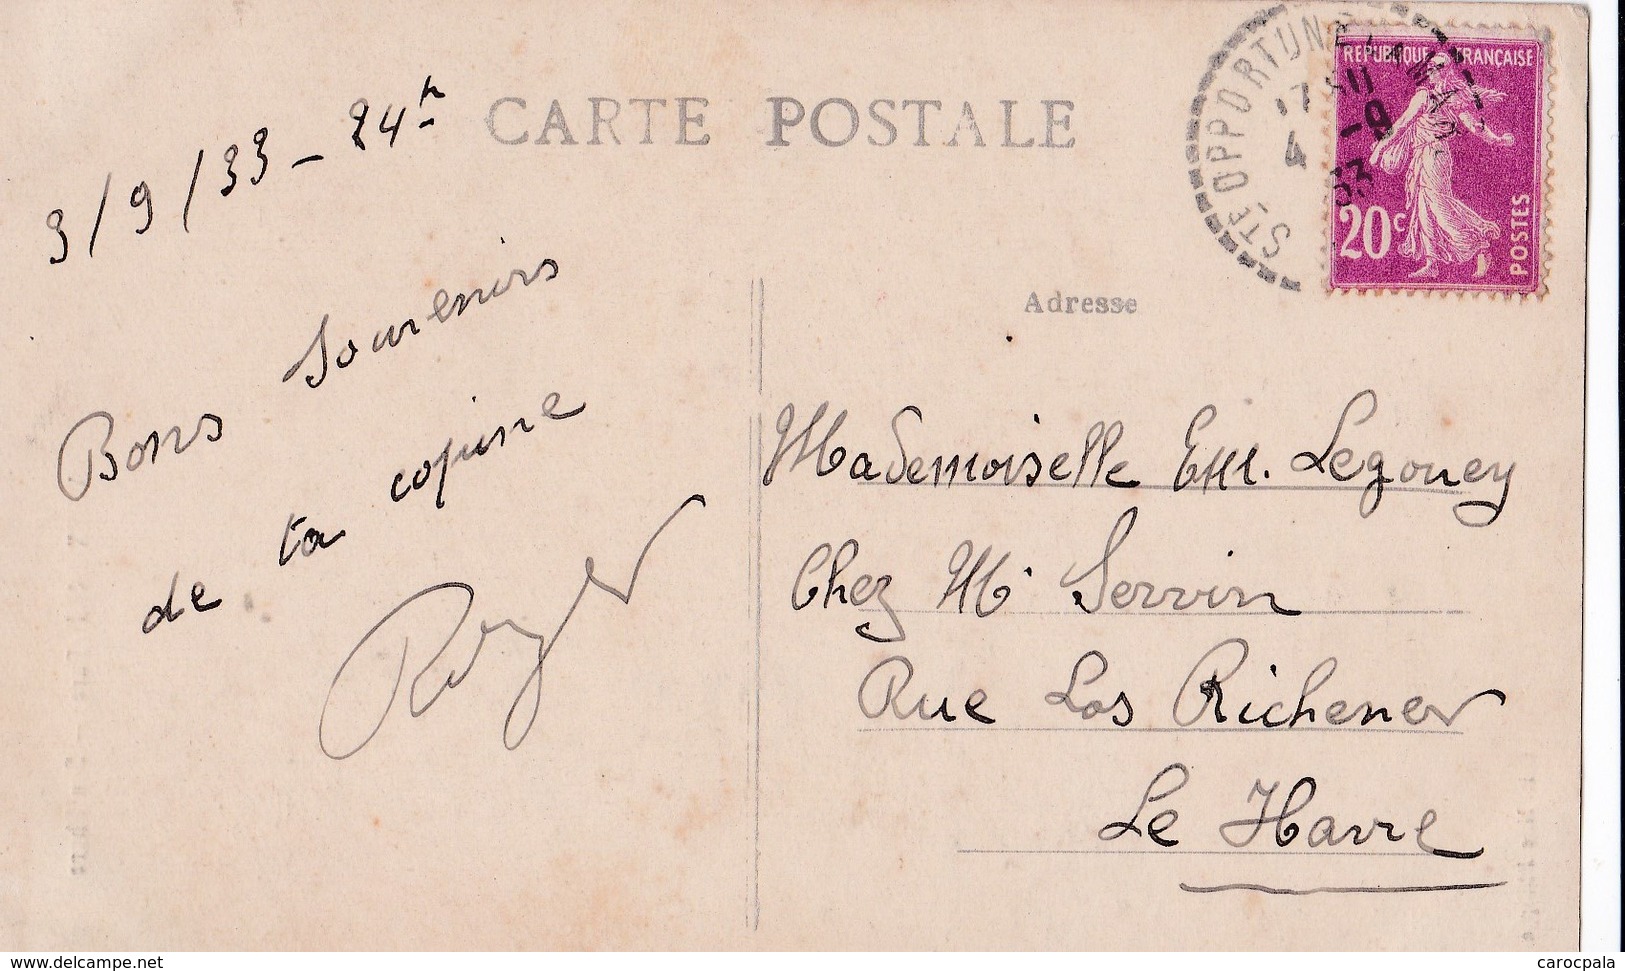 CARTE POSTALE
3/9/33 - 24h
Bons Souvenirs
de ta copine
Roger
STE OPPORTUNE
4 -9
33
REPUBLIQUE FRANÇAISE
20c
POSTES
Adresse
Mademoiselle Em. Legouey
Chez Mr Servin
Rue Las Richener
Le Havre
www.delcampe.net
carocpala